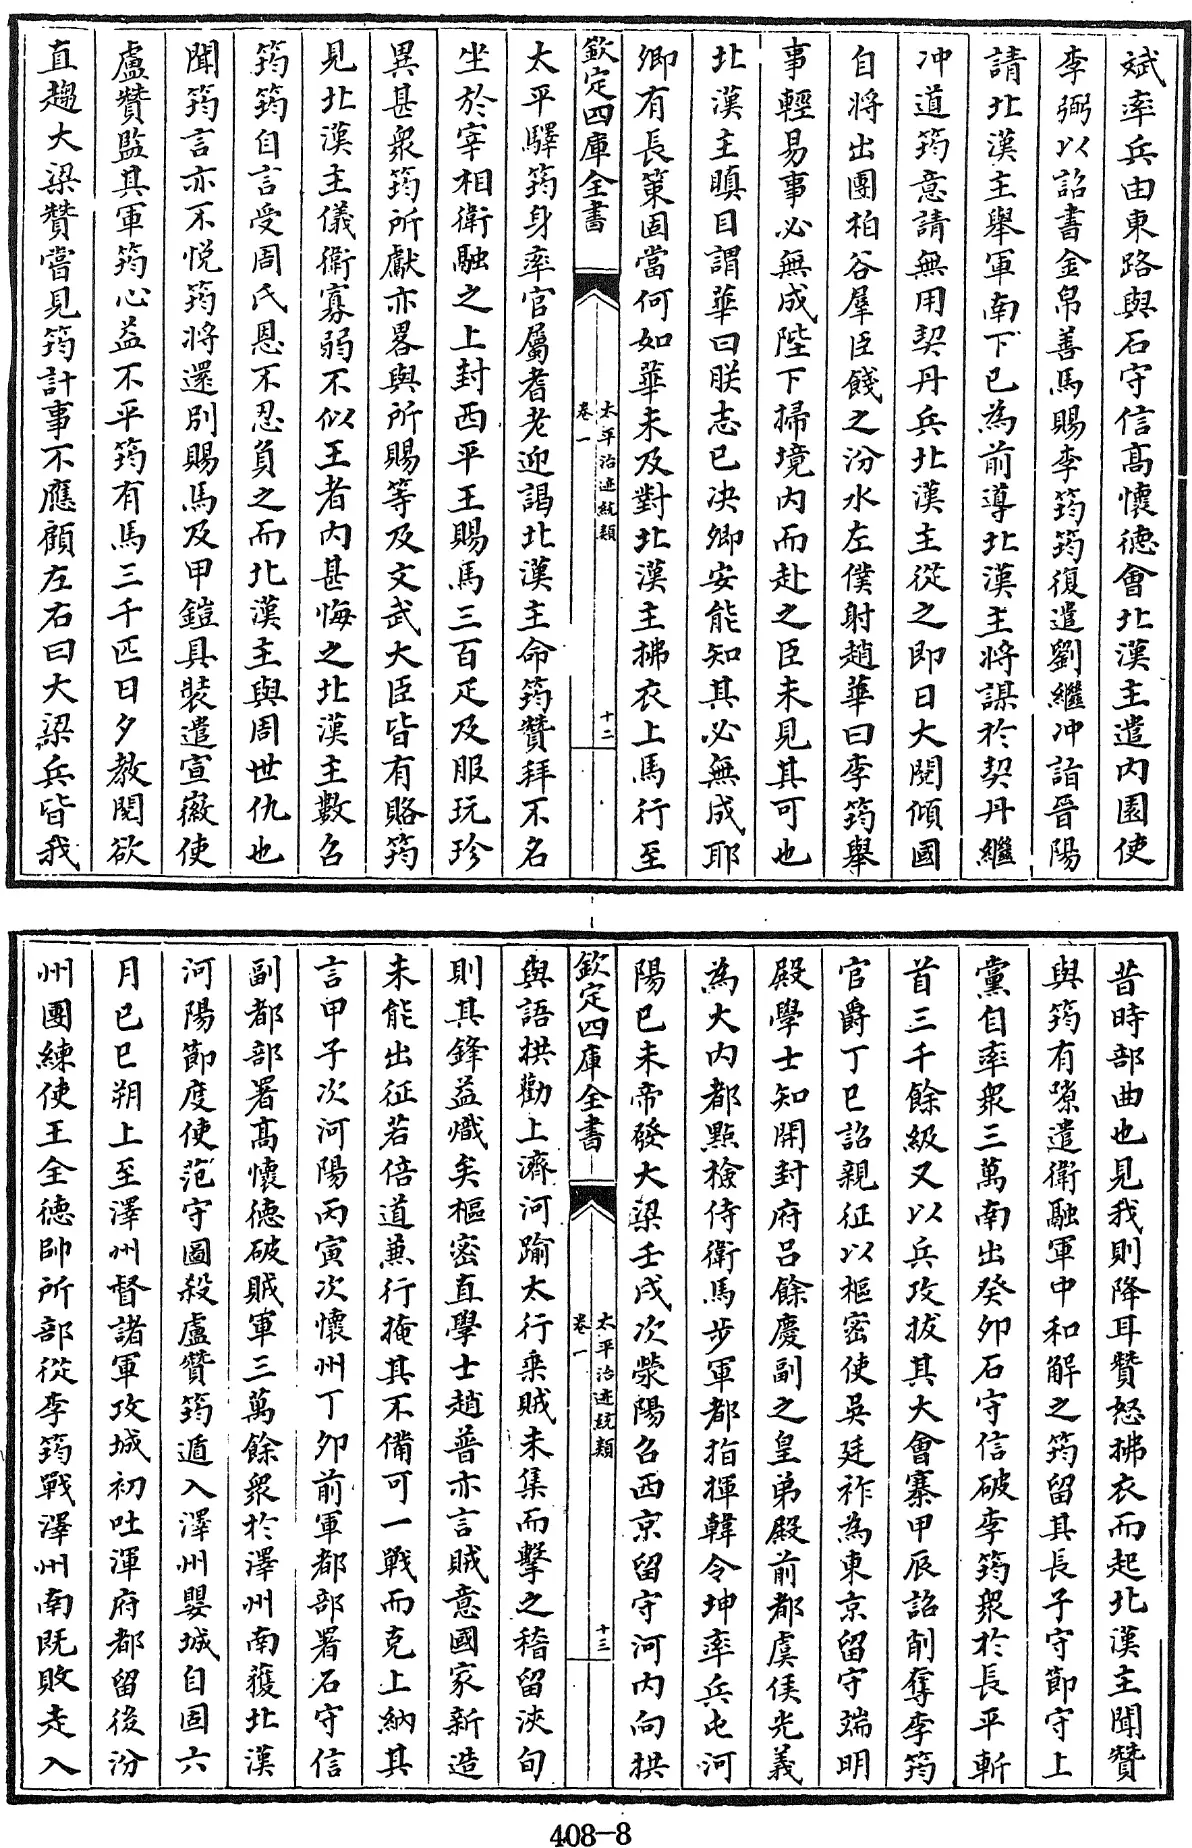 斌率兵由東路與石守信髙懷徳會北漢主遣内園使
李弼以詔書金帛善馬賜李筠筠復遣劉繼冲詣晉陽
請北漢主舉軍南下已為前導北漢主將謀於契丹繼
冲道筠意請無用契丹兵北漢主從之即日大閱傾國
自將出團柏谷羣臣餞之汾水左僕射趙華曰李筠舉
事輕易事必無成陛下掃境内而赴之臣未見其可也
北漢主瞋目謂華曰朕志已决卿安能知其必無成耶
卿有長策固當何如華未及對北漢主拂衣上馬行至
欽定四庫全書
太平治迹統類
卷一
十二
太平驛筠身率官屬耆老迎謁北漢主命筠贊拜不名
坐於宰相衛融之上封西平王賜馬三百疋及服玩珍
異甚衆筠所獻亦畧與所賜等及文武大臣皆有賂筠
見北漢主儀衛寡弱不似王者内甚悔之北漢主數召
筠筠自言受周氏恩不忍負之而北漢主與周世仇也
聞筠言亦不悦筠將還别賜馬及甲鎧具裝遣宣徽使
盧贊監其軍筠心益不平筠有馬三千匹日夕教閱欲
直趨大梁贊嘗見筠計事不應顧左右曰大梁兵皆我
昔時部曲也見我則降耳贊怒拂衣而起北漢主聞贊
與筠有隙遣衛融軍中和解之筠留其長子守節守上
黨自率衆三萬南出癸夘石守信破李筠衆於長平斬
首三千餘級又以兵攻拔其大會寨甲辰詔削奪李筠
官爵丁巳詔親征以樞密使吳廷祚為東京留守端明
殿學士知開封府吕餘慶副之皇弟殿前都虞侯光義
為大内都點檢侍衛馬步軍都指揮韓令坤率兵屯河
陽己未帝發大梁壬戌次滎陽召西京留守河内向拱
欽定四庫全書
太平治迹統類
卷一
十三
與語拱勸上濟河踰太行乗賊未集而擊之稽留浹旬
則其鋒益熾矣樞密直學士趙普亦言賊意國家新造
未能出征若倍道兼行掩其不備可一戰而克上納其
言甲子次河陽丙寅次懷州丁夘前軍都部署石守信
副都部署髙懷徳破賊軍三萬餘衆於澤州南獲北漢
河陽節度使范守圖殺盧贊筠遁入澤州嬰城自固六
月己巳朔上至澤州督諸軍攻城初吐渾府都留後汾
州團練使王全徳帥所部從李筠戰澤州南既敗走入
408-8